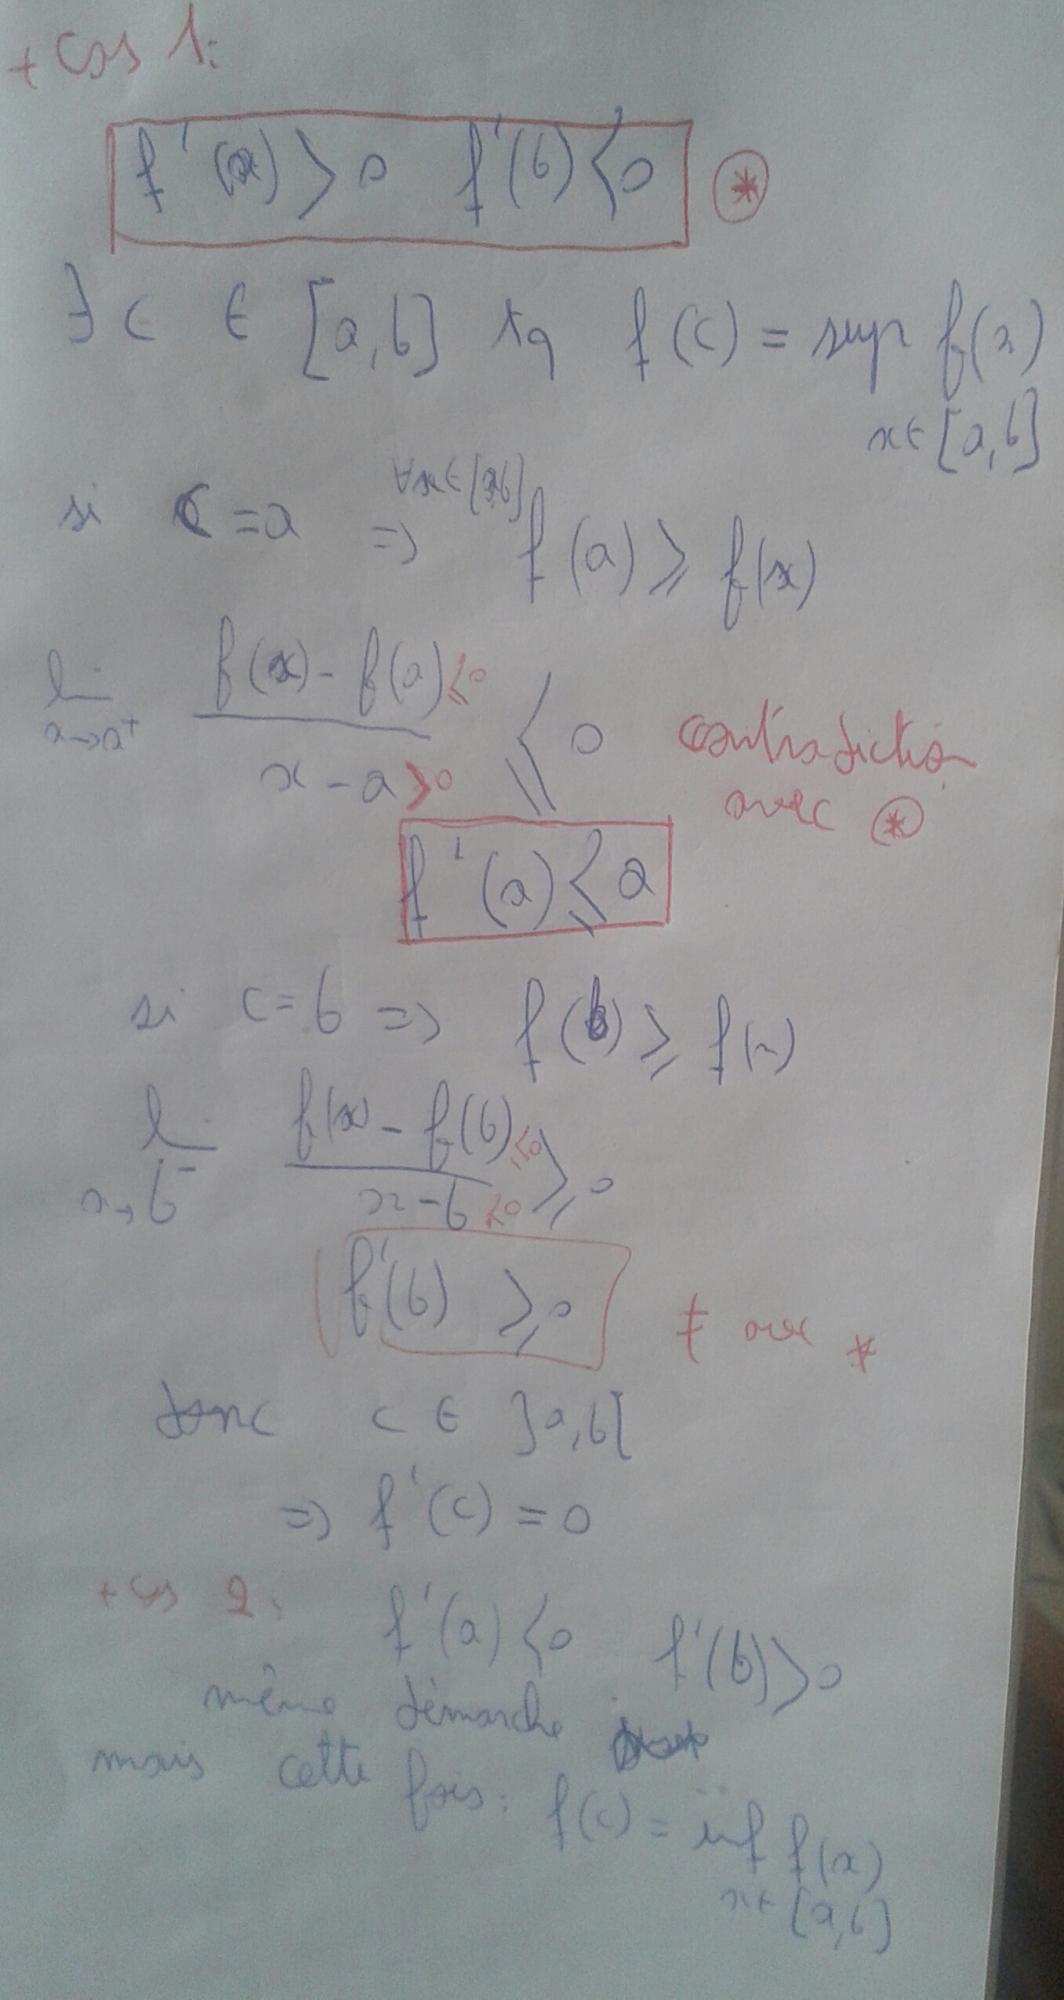 + Cas 1:
f'(a) > 0 f'(b) < 0 *
∃ c ∈ [a,b] tq f(c) = sup f(x)
x∈[a,b]
∀x∈[a,b]
si c = a => f(a) ⩾ f(x)
f(x) - f(a) ≤0
lim ⩽ 0 contradiction
x→a+ x - a >0 avec *
f'(a) ⩽ 0
si c = b => f(b) ⩾ f(x)
lim f(x) - f(b) ≤0 ⩾ 0
x→b- x - b <0
f'(b) ⩾ 0
≠ avec *
donc c ∈ ]a,b[
=> f'(c) = 0
+ cas 2: f'(a) < 0 f'(b) > 0
même démarche
mais cette fois: f(c) = inf f(x)
x∈[a,b]